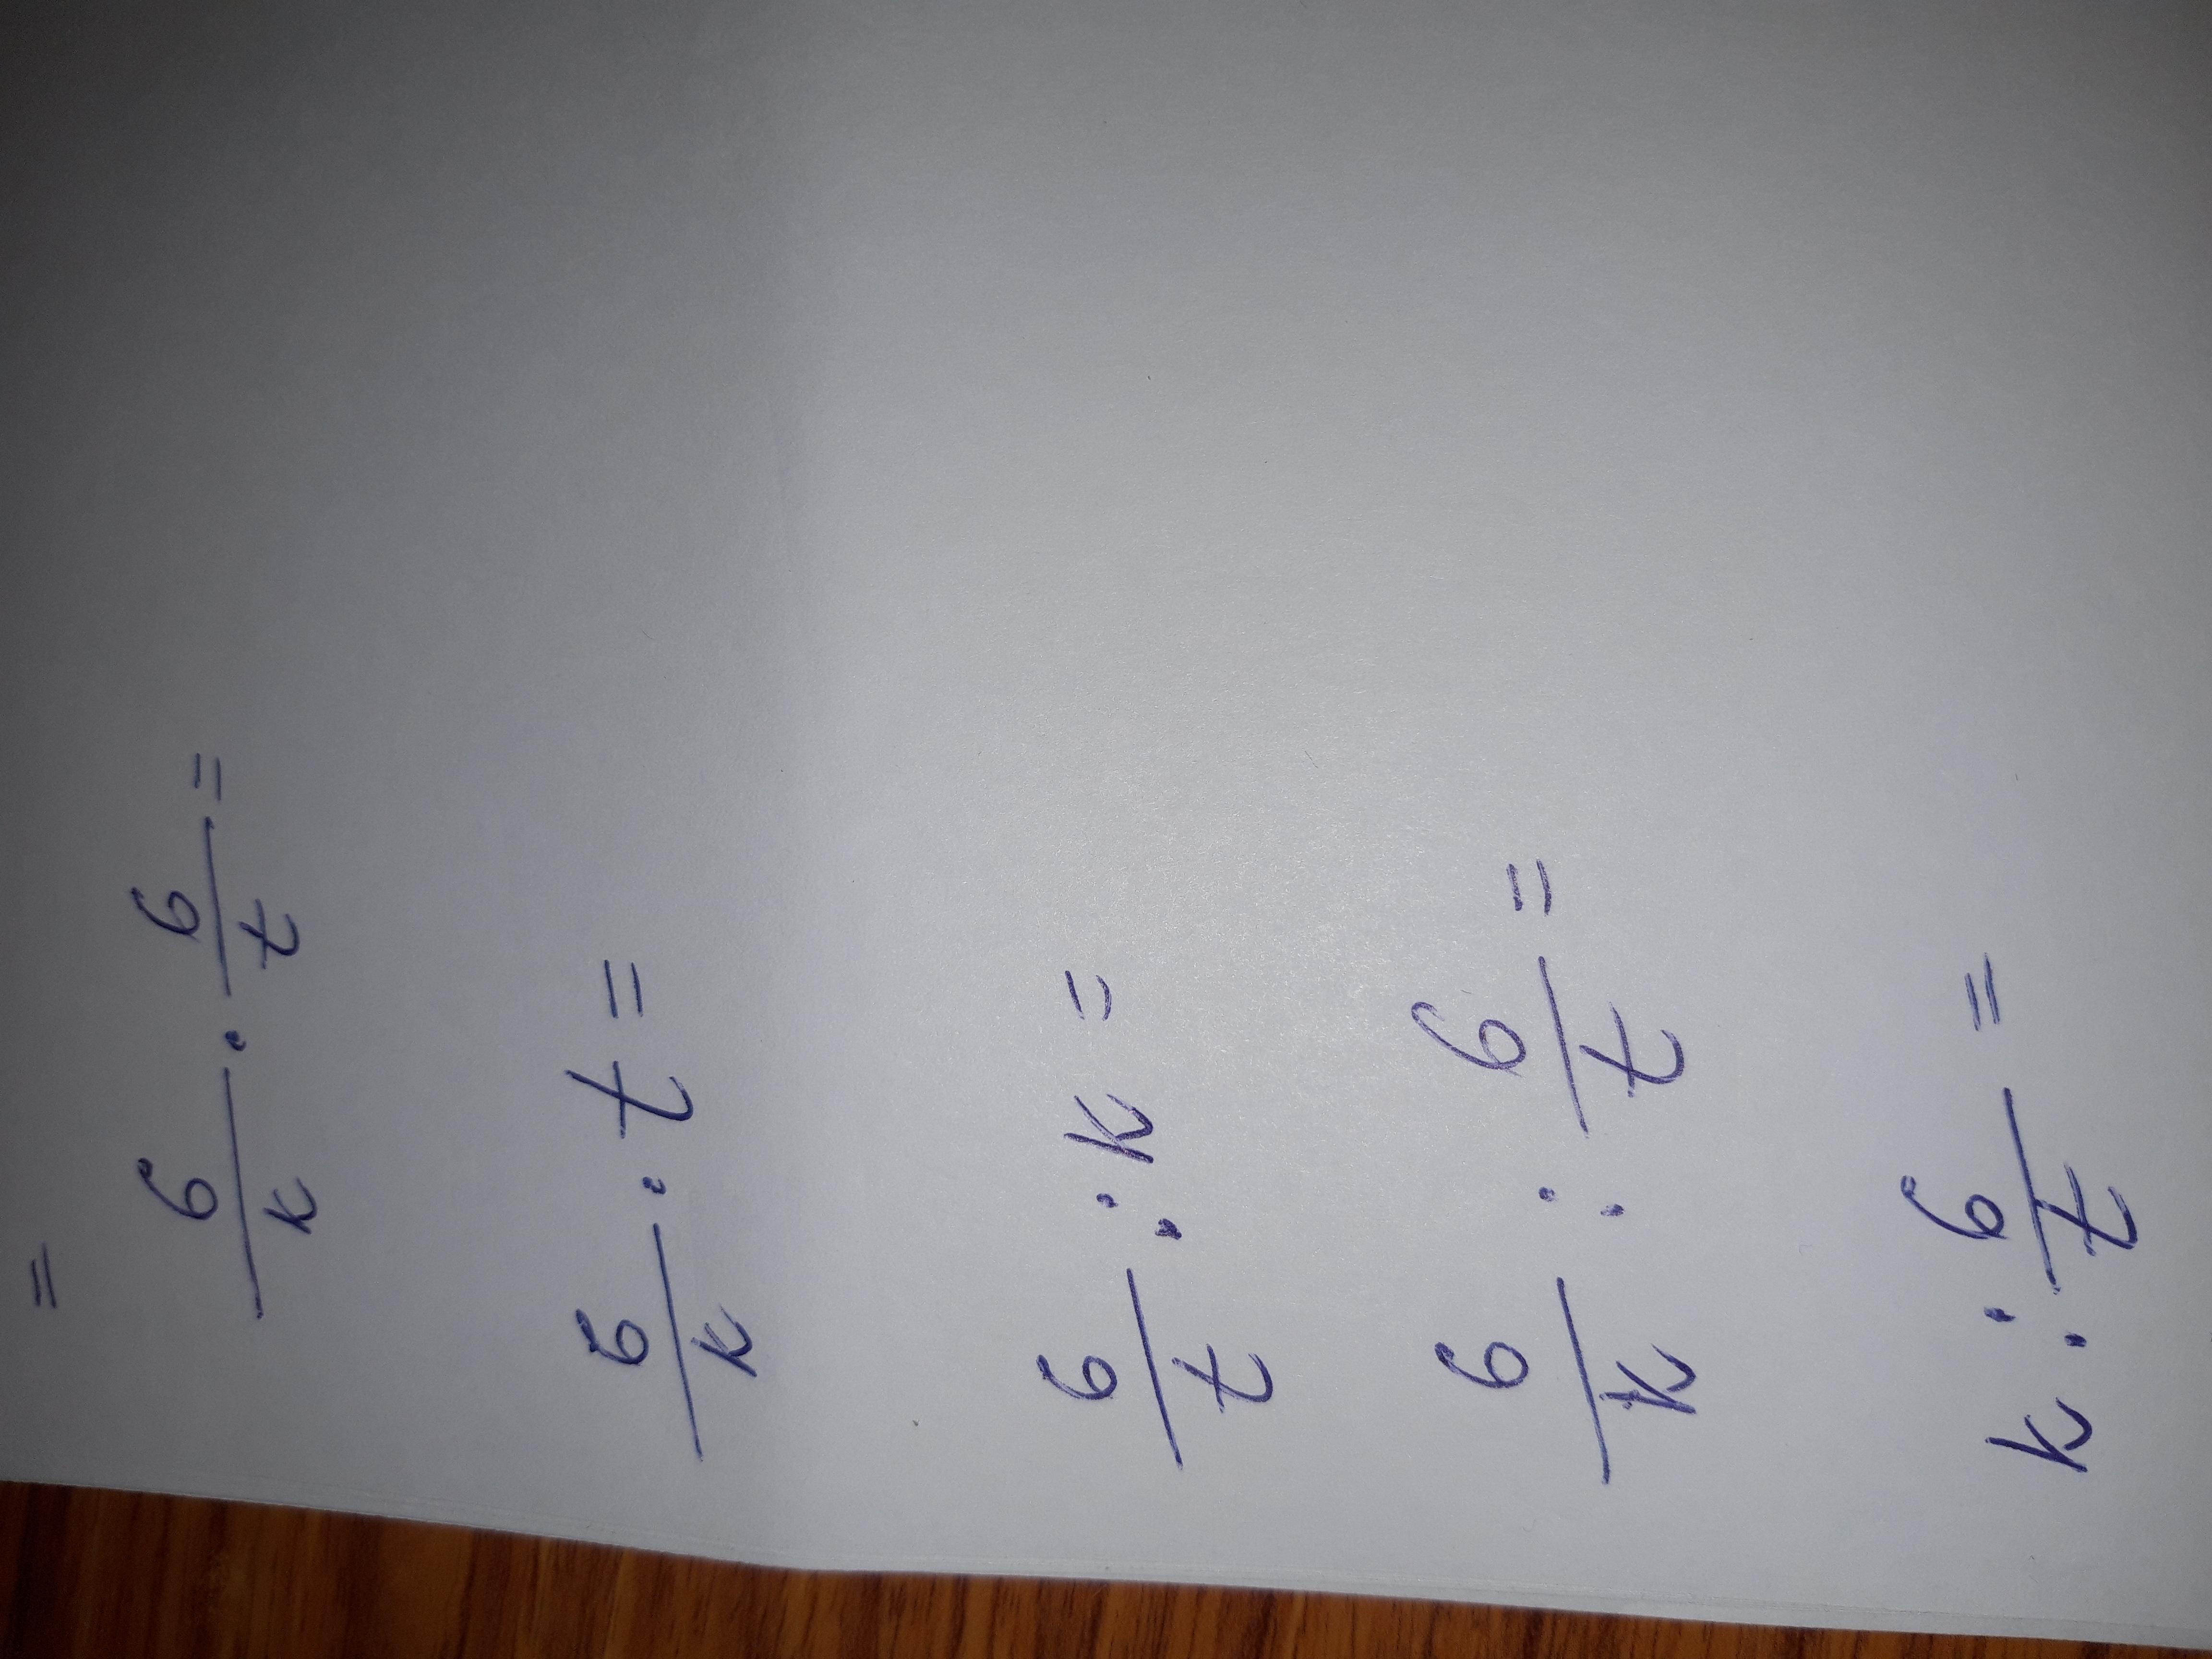 =
6/k · 6/t =
6/k · t =
6/t : k =
6/k : 6/t =
k : 6/t =